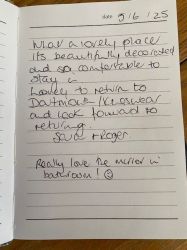 date 9/6/25
What a lovely place
its beautifully decorated
and so comfortable to
stay in
Lovely to return to
Dartmouth / Kingswear
and look forward to
returning.
+ Roger.
Really love the mirror in
bathroom! ☺